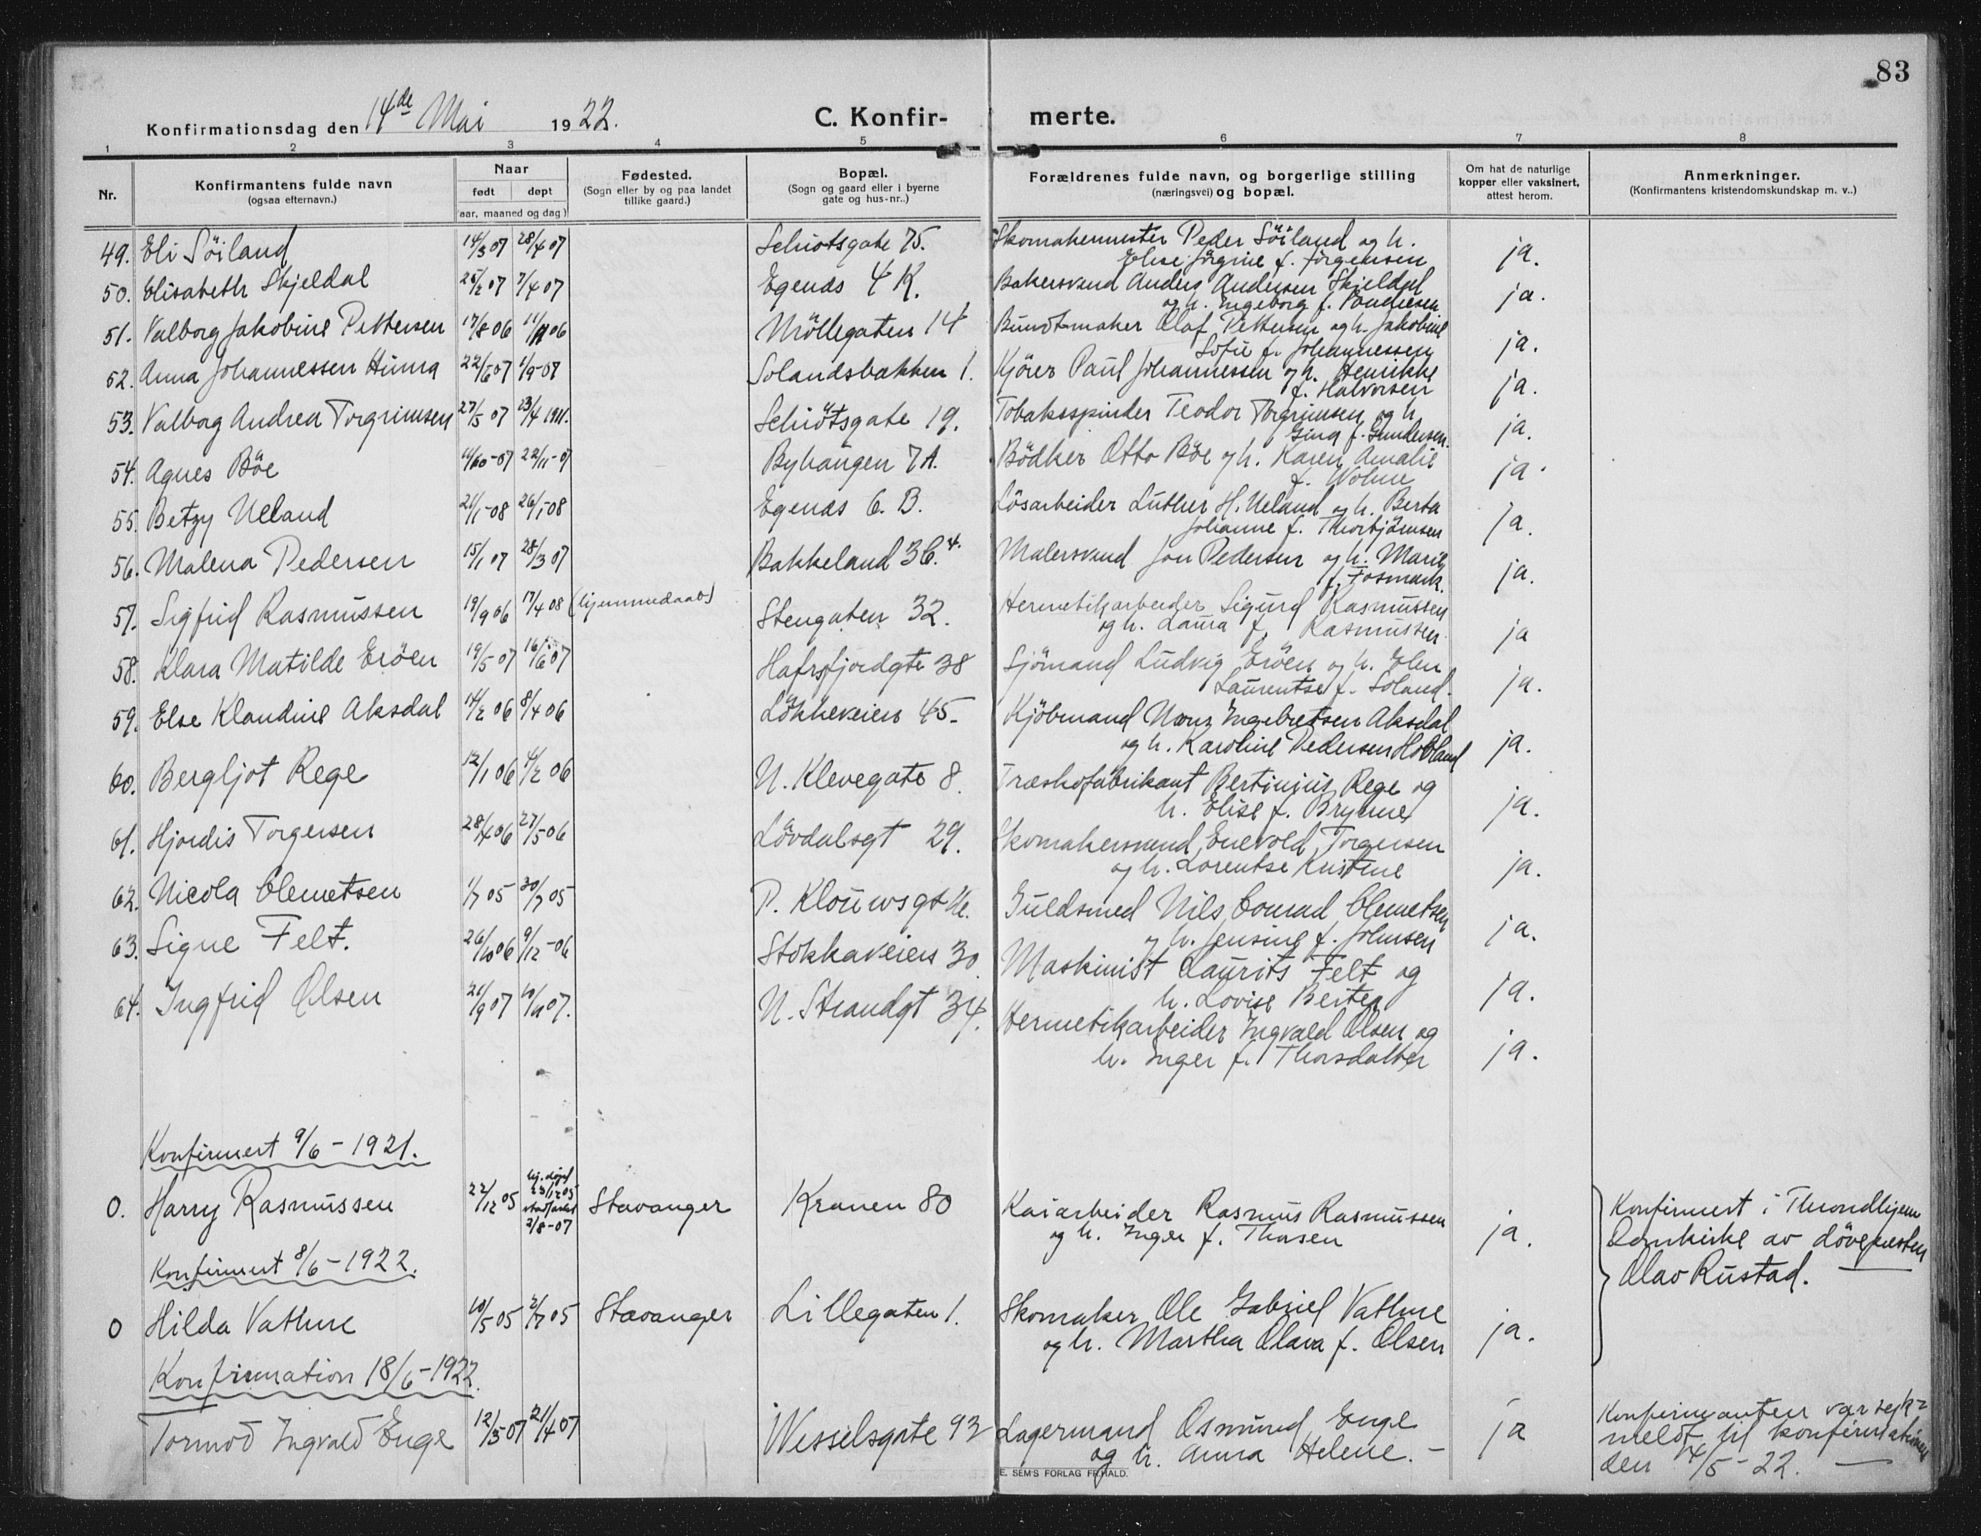 83
Konfirmationsdag den 14de Mai 1922. C. Konfirmerte.
1 2 3 4 5 6 7 8
Nr. Konfirmantens fulde navn (ogsaa efternavn.) Naar født døpt aar, maaned og dag) Fødested. (Sogn eller by og paa landet tillike gaard.) Bopæl. (Sogn og gaard eller i byerne gate og hus-nr..) Forældrenes fulde navn, og borgerlige stilling (næringsvei) og bopæl. Om hat de naturlige kopper eller vaksinert, attest herom. Anmerkninger. (Konfirmantens kristendomskundskap m. v..)
49. Eli Söiland 14/3 07 28/4 07 Schiötsgate 75. Skomakermester Peder Söiland og h. ja.
Elise Jörgine f. Jörgensen
50. Elisabeth Skjeldal 25/2 07 7/4 07 Egenæs 4 K. Bakersvend Anders Andersen Skjeldal ja.
og h. Ingeborg f.
51. Valborg Jakobine Pettersen 17/8 06 11/11 06 Möllegaten 14 Buntmaker Olaf Pettersen og h. Jakobine ja.
Sofie f. Johannessen
52. Anna Johannessen Hinna 22/6 07 1/9-07 Solandsbakken 1. Kjörer Paul Johannessen og h. Henrikke ja.
f. Halvorsen
53. Valborg Andrea Torgrimsen 27/5 07 23/4 1911. Schiötsgate 19. Tobaksspinder Teodor Torgrimsen og h. ja.
Gina f. Gundersen.
54. Agnes Böe 11/10-07 22/11-07 Byhaugen 7A. Bödker Otto Böe og h. Karen Amalie ja.
f.
55. Betzy Ueland 21/1-08 26/1-08 Egenæs 6. B. Lösarbeider Luther H. Ueland og h. Berta ja.
Johanne f. Thorbjörnsen
56. Malena Pedersen 15/1 07 28/3 07 Bakkeland 36.4. Malersvend Jon Pedersen og h. Marie ja.
f. Fosmark.
57. Sigfrid Rasmussen 19/9 06 17/4 08 (hjemmedaab) Stengaten 32. Hermetikarbeider Sigurd Rasmussen ja
og h. Laura f. Rasmussen.
58. Klara Matilde Eröen 19/5 07 16/6 07 Hafrsfjordgte 38 Sjömand Ludvig Eröen og h. Elen ja.
Laurentse f. Soland.
59. Else Klaudine Aksdal 14/2 06 8/4 06 Lökkeveien 45. Kjöbmand Mons Ingebretsen Aksdal ja.
og h. Karoline Pedersen Hobland
60. Bergljot Rege 12/1 06 4/2 06 N. Klevegate 8. Træskofabrikant Bertinius Rege og ja.
h. Elise f. Brynne
61. Hjördis Torgersen 28/4 06 27/5 06 Lövdalsgt 29. Skomakersvend Enevold Torgersen ja.
og h. Lorentse Kristine
62. Nicola Clemetsen 1/7 05 30/7 05 P. Klouwsgt Guldsmed Nils Conrad Clemetsen ja.
og h. Jensine f. Johnsen
63. Signe Felt. 26/10 06 9/12-06 Stokkaveien 30. Maskinist Laurits Felt og ja.
h. Lovise Berten
64. Ingfrid Olsen 21/9 07 10/11 07. N. Strandgt 34. Hermetikarbeider Ingvald Olsen og ja.
h. Inger f. Thorsdatter
Konfirmert 9/6-1921.
0. Harry Rasmussen 22/12 05 hj. döpt 23/12 05 2/8-07 Stavanger Kranen 80 Kaiarbeider Rasmus Rasmussen ja. Konfirmert i Throndhjem
og h. Inger f. Thorsen Domkirke av dövepresten
Konfirmert 8/6-1922. Olav Rustad.
0 Hilda Vathne 10/5 05 2/7 05 Stavanger Lillegaten 1. Skomaker Ole Gabriel Vathne ja.
og h. Martha Olava f. Olsen
Konfirmation 18/6-1922.
Tormod Ingvald Enge 12/3 07 21/4 07 Wesselsgate 93 Lagermand Osmund Enge ja Konfirmanten var syk-
og h. Anna Helene. - meldt til konfirmationen
den 14/5-22.
E. SEM'S FORLAG FR.HALD.